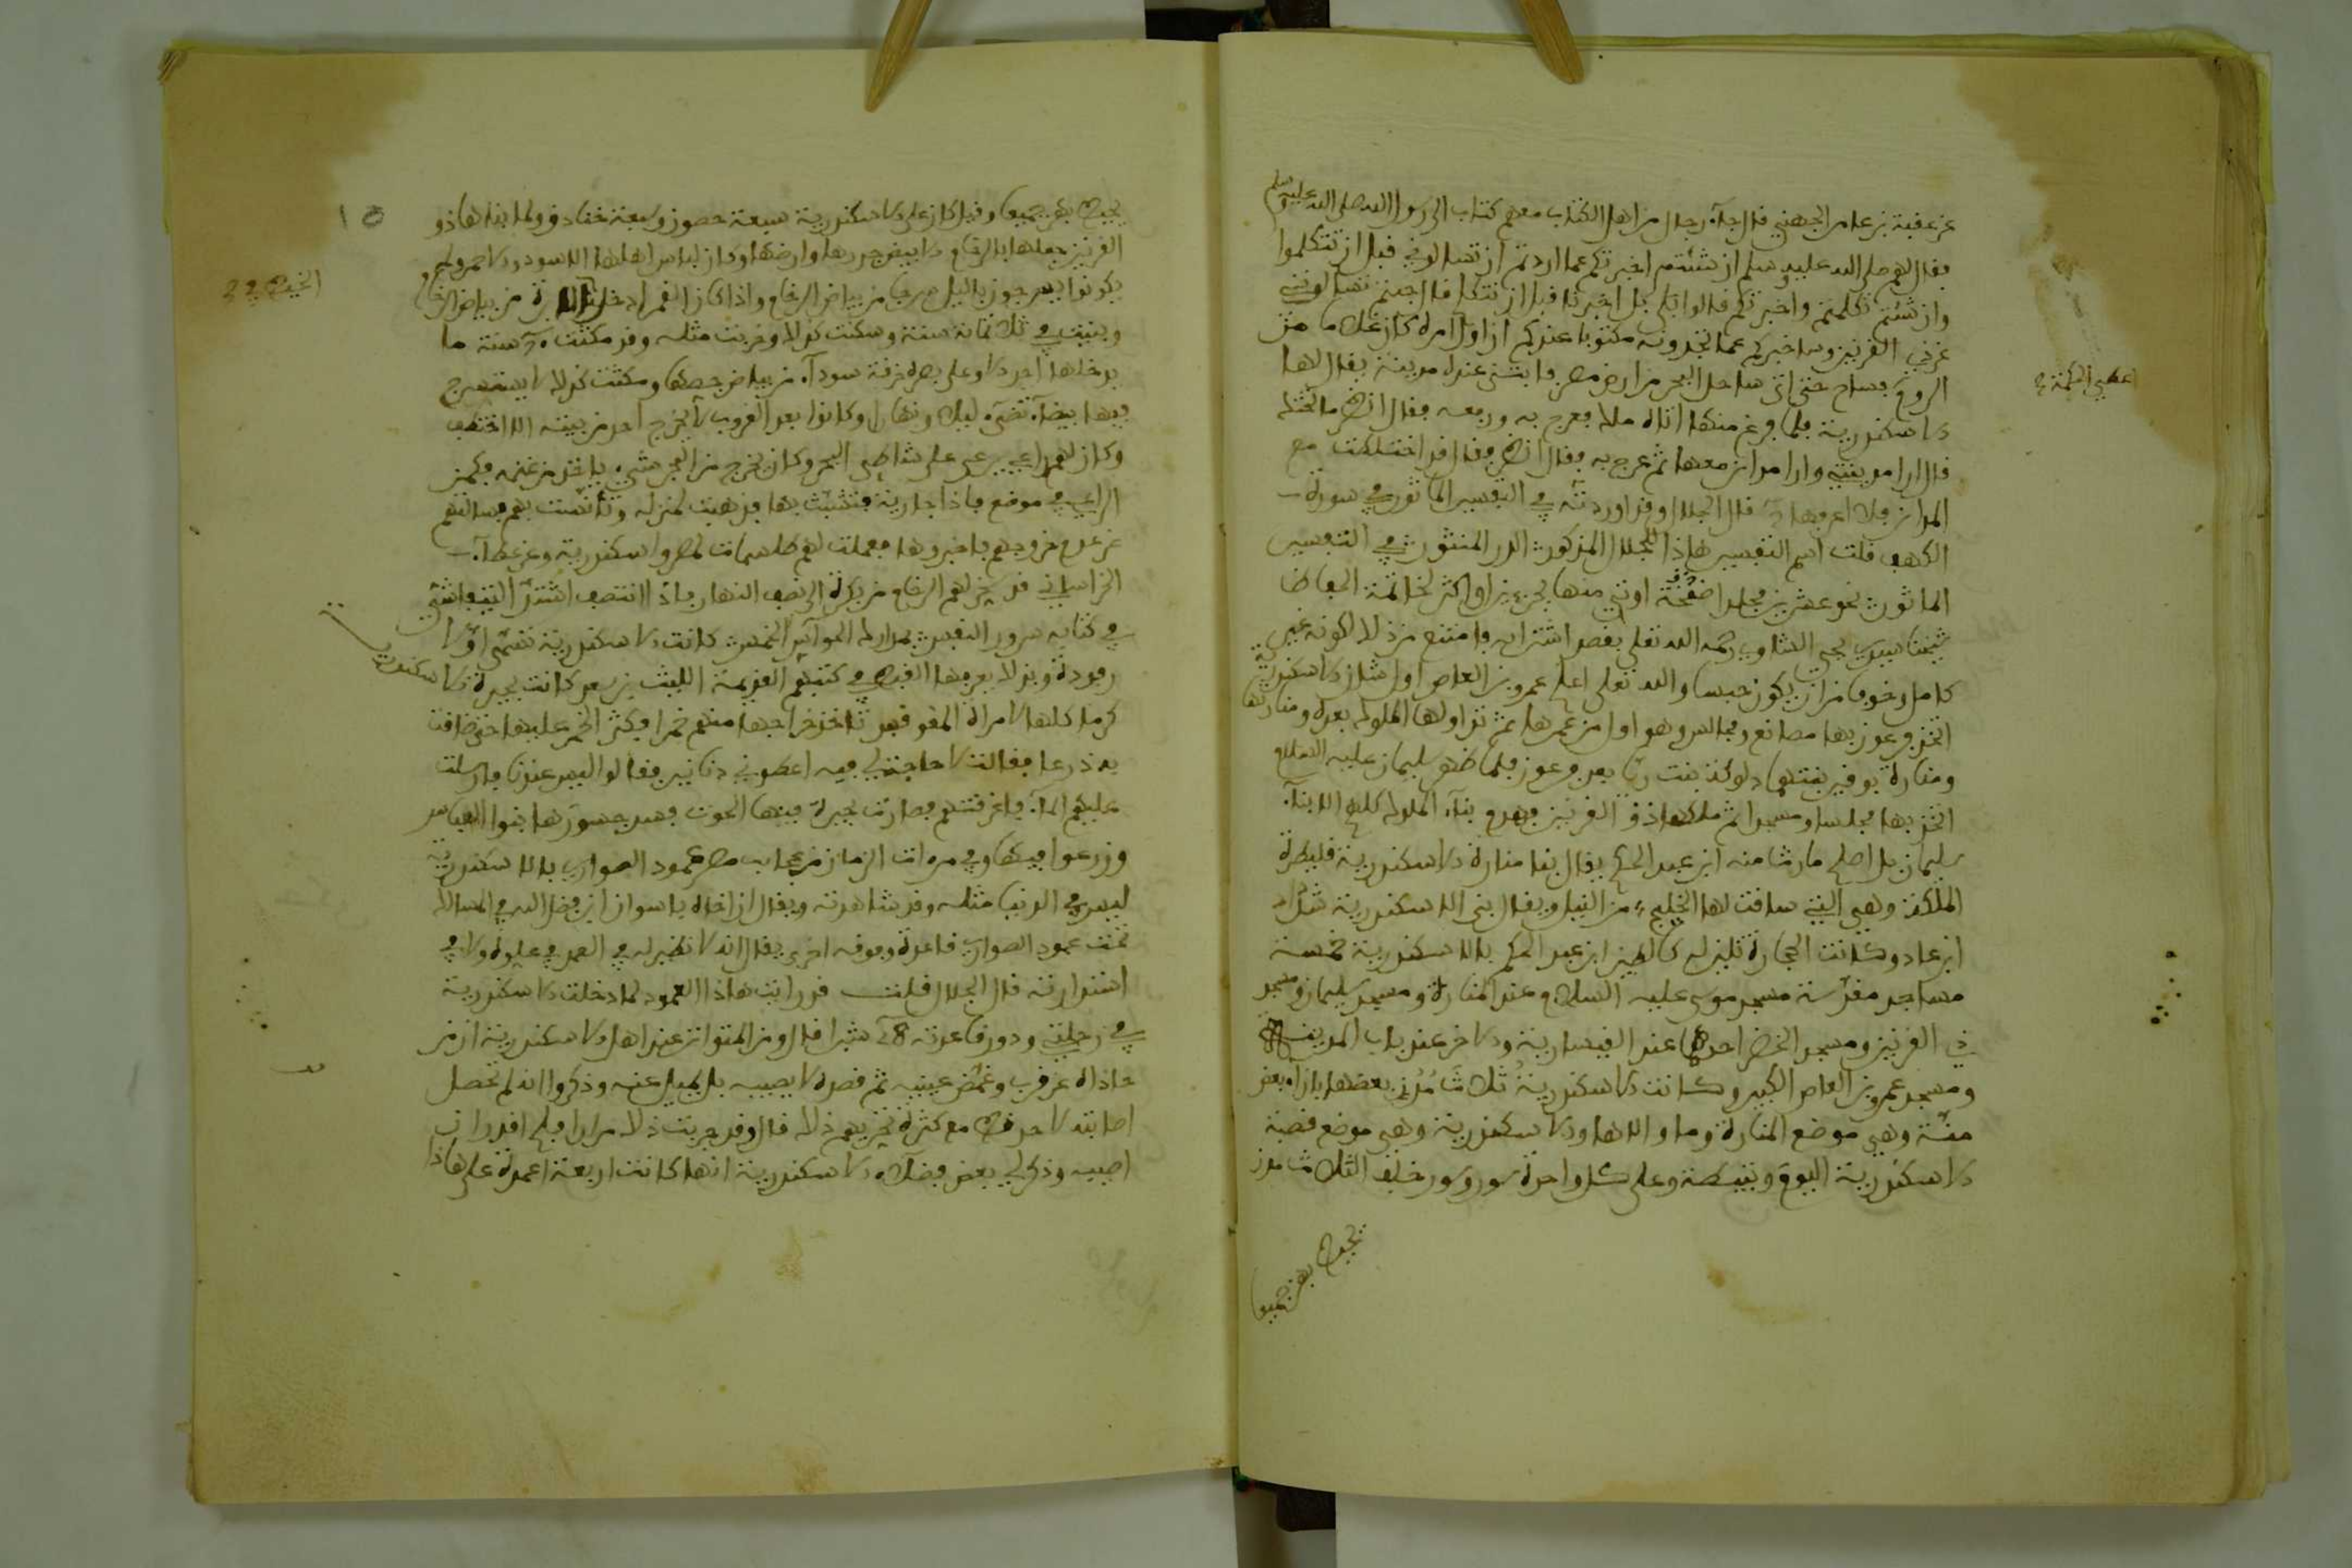 عن عقبة بن عامر الجهني قال جاء رجال من اهل الكتاب معهم كتاب الى رسول الله صلى الله عليه وسلم
فقال لهم صلى الله عليه وسلم ان شئتم اخبرتكم عما اردتم ان تسالوني قبل ان تتكلموا
وان شئتم تكلمتم واخبرتكم قالوا بلى بل اخبرنا قبل ان نتكلم قال جئتم تسالونني
عن ذي القرنين وساخبركم عما تجدونه مكتوبا عندكم ان اول امره كان غلاما من
الروم فسار حتى اتى ساحل البحر من ارض مصر فابتنى عنده مدينة يقال لها
الاسكندرية فلما فرغ منها اتاه ملك فعرج به ورفعه فقال انظر ما تحتك
قال ارى مدينتي وارى مدائن معها ثم عرج به فقال انظر فقال قد اختلطت مع
المدائن فلا اعرفها قال الجلال وقد اوردته في التفسير الماثور في سورة
الكهف قلت اسم التفسير هاذا للجلال المذكور الدر المنثور في التفسير
الماثور نحو عشرين مجلدا ضخمة اوتي منها بجزءين او اكثر لخاتمة الحفاظ
شيخنا سيدي يحيى الشاوي رحمه الله تعلى بقصد اشترايه وامتنع من ذلك لكونه غير
كامل وخوفا من ان يكون حبسا والله تعلى اعلم عمرو بن العاص اول شان الاسكندرية
اتخذ فرعون بها مصانع ومجالس وهو اول من عمرها ثم تداولها الملوك بعده ومنارتها
ومنارة بوقير بنتهما دلوكة بنت ريا بعد فرعون فلما ظهر سليمان عليه السلام
اتخذ بها مجلسا ومسجدا ثم ملكها ذو القرنين فهدم بناء الملوك كلهم الا بناء
سليمان بل اصلح ما رث منه ابن عبد الحكم يقال بنا منارة الاسكندرية قلبطرة
الملكة وهي التي ساقت لها الخليج من النيل ويقال بنى الاسكندرية شداد
ابن عاد وكانت الحجارة تلين له كالطين ابن عبد الحكم بالاسكندرية خمسة
مساجد مقدسة مسجد موسى عليه السلام عند المنارة ومسجد سليمان ومسجد
ذي القرنين ومسجد الخضر احدهما عند القيسارية والاخر عند باب المدينة
ومسجد عمرو بن العاص الكبير وكانت الاسكندرية ثلاث مدن بعضها بازاء بعض
منة وهي موضع المنارة وما والاها والاسكندرية وهي موضع قصبة
الاسكندرية اليوم ونقيطة وعلى كل واحدة سور وسور خلف الثلاث مدن
يحيط بهن جميعا
اعطي الحكمة
يحيط بهن جميعا وقيل كان على الاسكندرية سبعة حصون وسبعة خنادق ولما بناها ذو
القرنين جعلها بالرخام الابيض جدرها وارضها وكان لباس اهلها السود والاحمر ولم
يكونوا يسرجون بالليل من بياض الرخام واذا كان القمر ادخل من بياض الرخام
وبنيت في ثلاثمائة سنة وسكنت كذلك وخربت مثله وقد مكثت سنة ما
يدخلها احد الا وعلى بصره خرقة سوداء من بياض جصها ومكثت كذلك لا يستسرج
فيها بيضاء تضيء ليلا ونهارا وكانوا بعد الغروب لا يخرج احد من بيته الا اختطف
وكان لهم راعي يرعى على شاطئ البحر وكان يخرج من البحر شيء ياخذ من غنمه فكمن
الراعي في موضع فاذا جارية فتشبث بها فذهبت لمنزله وتأنست بهم فسالتهم
عن عدم خروجهم فاخبروها فعملت لهم طلسمات لمصر واسكندرية وعن عطاء
الخراساني قد سخر لهم الرخام من بكرة الى نصف النهار فاذا انتصف اشتد التيفاشي
في كتابه سرور النفس بمدارك الحواس الخمس كانت الاسكندرية تسمى اولا
رقودة وبذلك يعرفها القبط في كتبهم القديمة الليث بن سعد كانت بحيرة الاسكندرية
كرما كلها لامراة المقوقس تاخذ خراجها منهم خمرا فكثر الخمر عليها حتى ضاقت
به ذرعا فقالت لا حاجة لي فيه اعطوني دنانير فقالوا ليس عندنا فارسلت
عليهم الماء فاغرقتهم فصارت بحيرة فيها الحوت فسد جسورها بنوا العباس
وزرعوا فيها وفي مرءات الزمان من عجايب مصر عمود الصواري بالاسكندرية
ليس في الدنيا مثله وقد شاهدته ويقال ان اخاه باسوان ابن فضل الله في المسالك
تحت عمود الصواري قاعدة وفوقه اخرى يقال انه لا نظير له في العمد في علوه ولا في
استدارته قال الجلال قلت قد رايت هاذا العمود لما دخلت الاسكندرية
في رحلتي ودور قاعدته 84 شبرا قال ومن المتواتر عند اهل الاسكندرية ان من
حاذاه عن قرب وغمض عينيه ثم قصده لا يصيبه بل يميل عنه وذكروا انه لم تحصل
اصابته لاحد قط مع كثرة تجربتهم ذلك قال وقد جربت ذلك مرارا فلم اقدر ان
اصيبه وذكر لي بعض فضلاء الاسكندرية انها كانت اربعة اعمدة على هاذا